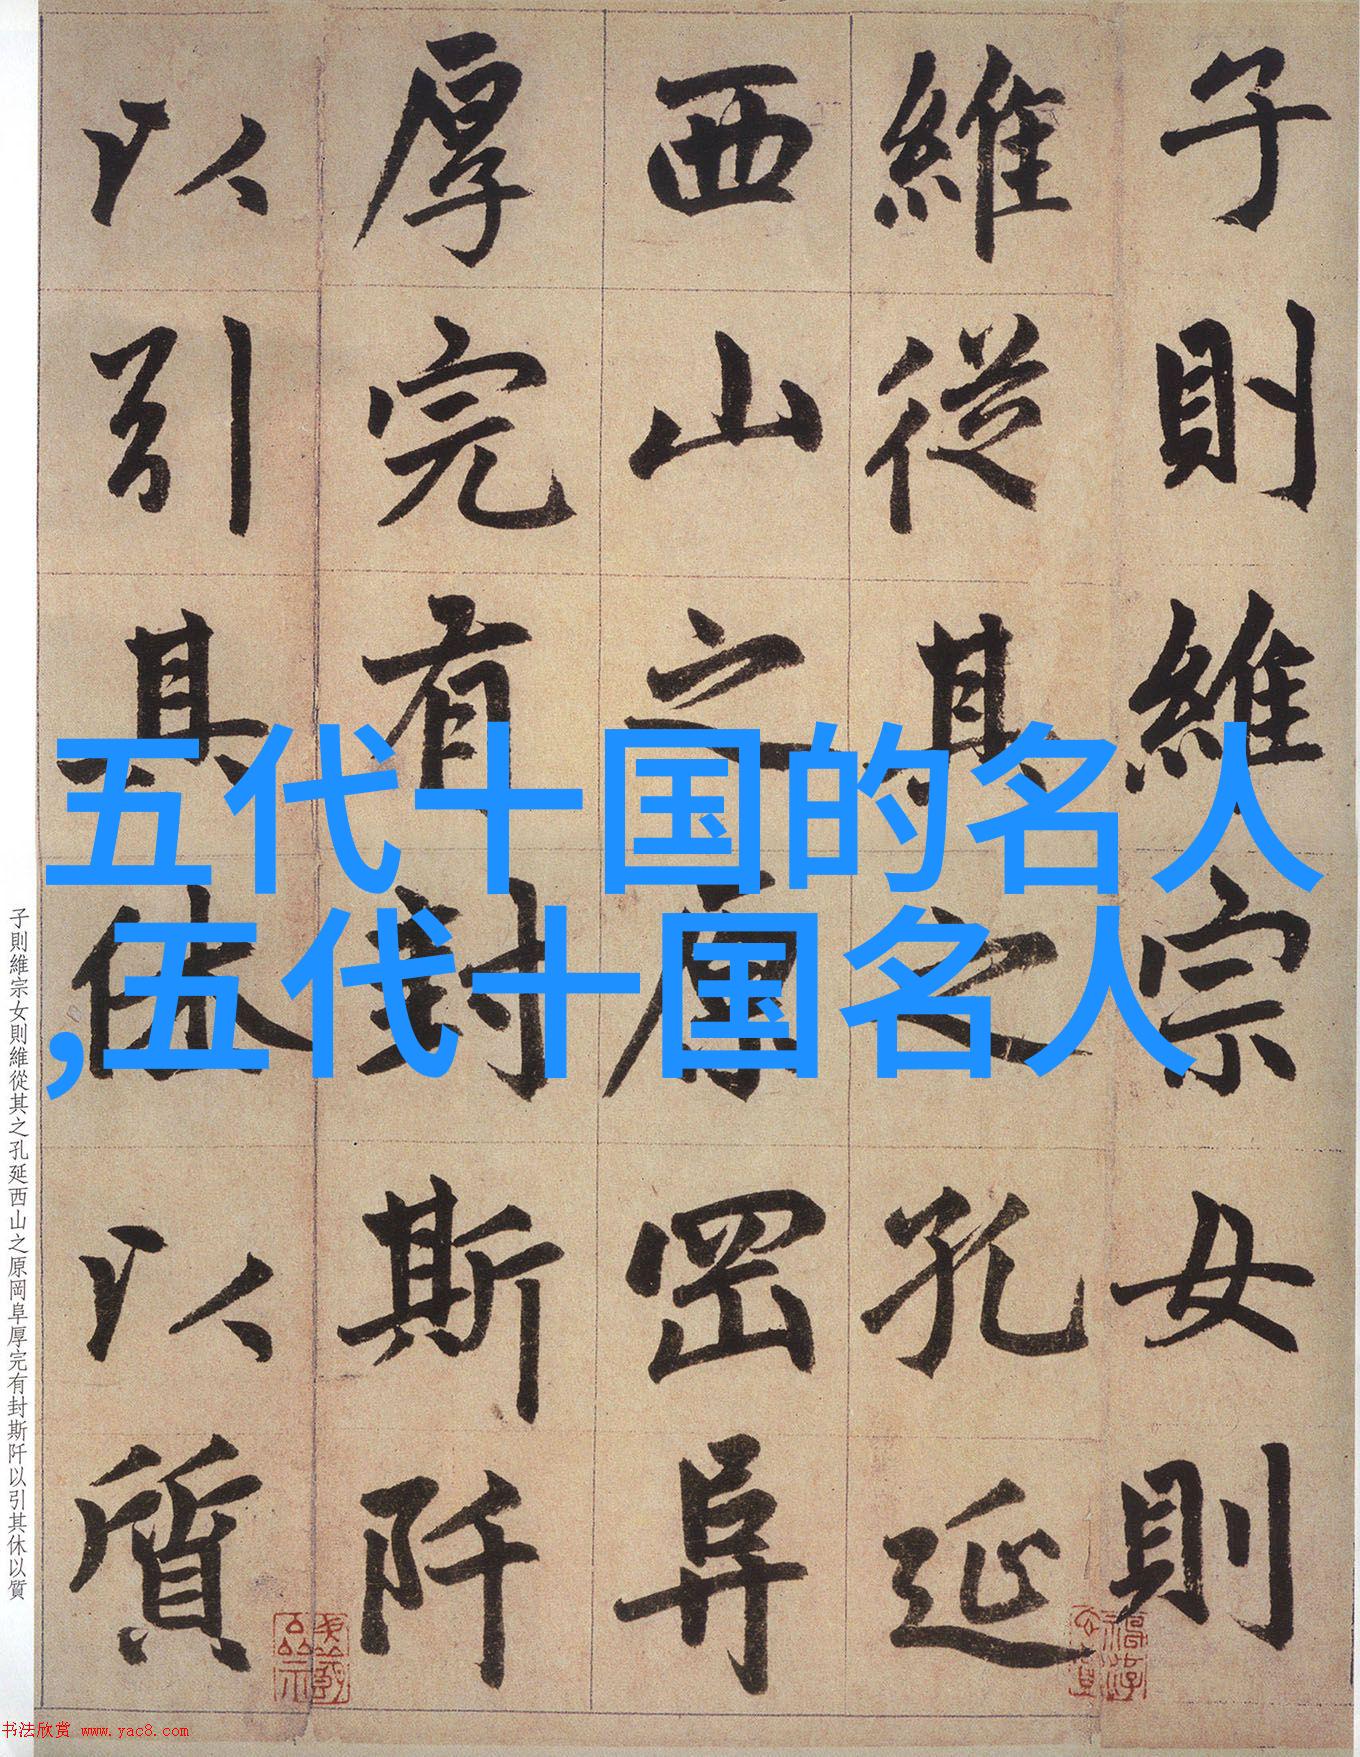 子則維宗女則
維從其之孔延
西山之原岡阜
厚完有封斯阡
以引其休以質
五代十国的名人
,五代十国名人
子則維宗女則維從其之孔延西山之原岡阜厚完有封斯阡以引其休以質
书法欣赏 www.yac8.com